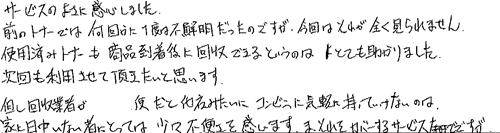 サービスのよさに感心しました。
前のトナーでは何回かに1度は不鮮明だったのですが、今回はそれが全く見られません。
使用済みトナーも商品到着後に回収できるというのはとても助かりました。
次回も利用させて頂きたいと思います。
但し回収業者が 便だと他店みたいにコンビニに気軽に持っていけないのは、
家に日中いない者にとっては少々不便さを感じます。まぁそれをカバーするサービス